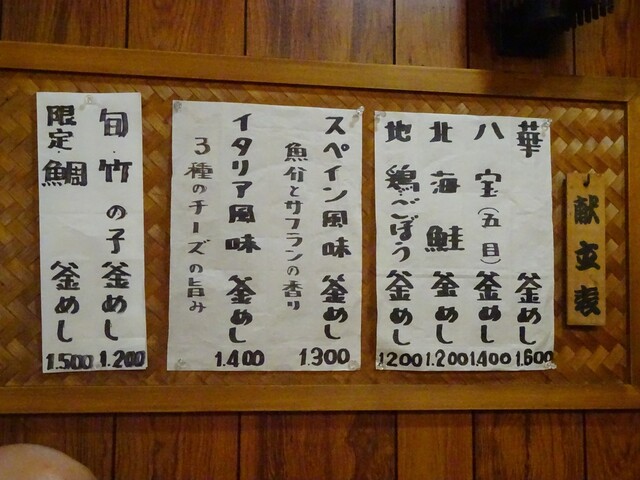 献立表
華 釜めし 1.600
八宝(五目)釜めし 1.400
北海鮭 釜めし 1.200
地鶏ごぼう釜めし 1200
スペイン風味 釜めし 1.300
魚介とサフランの香り
イタリア風味 釜めし 1.400
3種のチーズの旨み
旬・竹の子釜めし 1.200
限定・鯛 釜めし 1.500